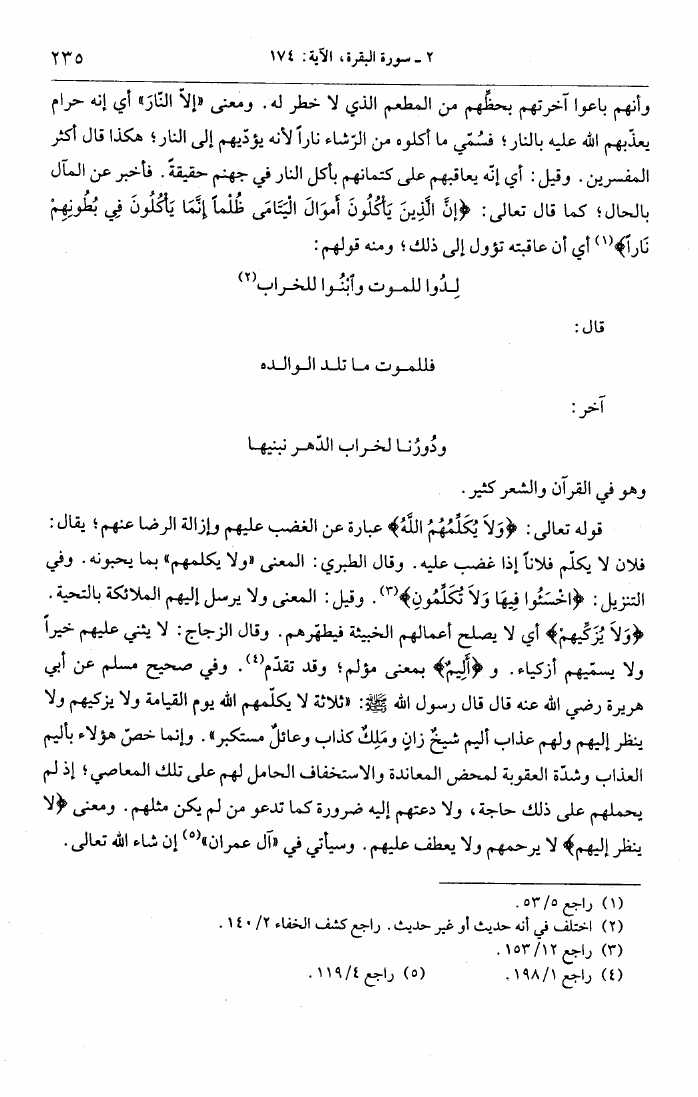 ٢ ـ سورة البقرة، الآية: ١٧٤ ٢٣٥
وأنهم باعوا آخرتهم بحظِّهم من المطعم الذي لا خطر له. ومعنى «إلاّ النّارَ» أي إنه حرام
يعذّبهم الله عليه بالنار؛ فسُمّي ما أكلوه من الرّشاء ناراً لأنه يؤدّيهم إلى النار؛ هكذا قال أكثر
المفسرين. وقيل: أي إنّه يعاقبهم على كتمانهم بأكل النار في جهنم حقيقةً. فأخبر عن المآل
بالحال؛ كما قال تعالى: ﴿إنَّ الَّذِينَ يَأكُلُونَ أموَالَ اليَتَامَى ظُلْماً إنَّمَا يَأكُلُونَ فِي بُطُونِهِمْ
نَاراً﴾(١) أي أن عاقبته تؤول إلى ذلك؛ ومنه قولهم:
لِـدُوا للمـوت وٱبْنُـوا للخـراب(٢)
قال:
فللمـوت مـا تلـد الـوالـده
آخر:
ودُورُنـا لخـراب الدّهـر نبنيهـا
وهو في القرآن والشعر كثير.
قوله تعالى: ﴿وَلاَ يُكَلِّمُهُمُ اللَّهُ﴾ عبارة عن الغضب عليهم وإزالة الرضا عنهم؛ يقال:
فلان لا يكلّم فلاناً إذا غضب عليه. وقال الطبري: المعنى «ولا يكلمهم» بما يحبونه. وفي
التنزيل: ﴿اخْسَئُوا فِيهَا وَلاَ تُكَلِّمُونِ﴾(٣). وقيل: المعنى ولا يرسل إليهم الملائكة بالتحية.
﴿وَلاَ يُزَكِّيهِمْ﴾ أي لا يصلح أعمالهم الخبيثة فيطهّرهم. وقال الزجاج: لا يثني عليهم خيراً
ولا يسمّيهم أزكياء. و ﴿أَلِيمٌ﴾ بمعنى مؤلم؛ وقد تقدّم(٤). وفي صحيح مسلم عن أبي
هريرة رضي الله عنه قال قال رسول الله ﷺ: «ثلاثة لا يكلّمهم الله يوم القيامة ولا يزكيهم ولا
ينظر إليهم ولهم عذاب أليم شيخٌ زانٍ ومَلِكٌ كذاب وعائلٌ مستكبر». وإنما خصّ هؤلاء بأليم
العذاب وشدّة العقوبة لمحض المعاندة والاستخفاف الحامل لهم على تلك المعاصي؛ إذ لم
يحملهم على ذلك حاجة، ولا دعتهم إليه ضرورة كما تدعو من لم يكن مثلهم. ومعنى ﴿لا
ينظر إليهم﴾ لا يرحمهم ولا يعطف عليهم. وسيأتي في «آل عمران»(٥) إن شاء الله تعالى.
(١) راجع ٥٣/٥.
(٢) اختلف في أنه حديث أو غير حديث. راجع كشف الخفاء ١٤٠/٢.
(٣) راجع ١٥٣/١٢.
(٤) راجع ١٩٨/١. (٥) راجع ١١٩/٤.